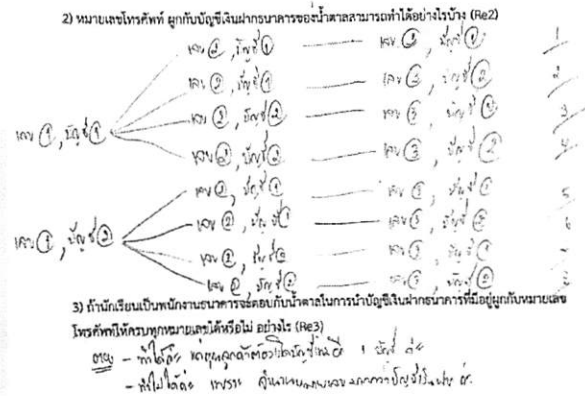 2) หมายเลขโทรศัพท์ ผูกกับบัญชีเงินฝากธนาคารของน้ำตาลสามารถทำได้อย่างไรบ้าง (Re2)
เลข ②, บัญชี ① เลข ③, บัญชี ① 1
เลข ②, บัญชี ① เลข ③, บัญชี ② 2
เลข ②, บัญชี ② เลข ③, บัญชี ① 3
เลข ①, บัญชี ①
เลข ②, บัญชี ② เลข ③, บัญชี ② 4
เลข ②, บัญชี ① เลข ③, บัญชี ① 5
เลข ②, บัญชี ① เลข ③, บัญชี ② 6
เลข ①, บัญชี ②
เลข ②, บัญชี ② เลข ③, บัญชี ①
เลข ②, บัญชี ② เลข ③, บัญชี ②
3) ถ้านักเรียนเป็นพนักงานธนาคารจะตอบกับน้ำตาลในการนำบัญชีเงินฝากธนาคารที่มีอยู่ผูกกับหมายเลข
โทรศัพท์ให้ครบทุกหมายเลขได้หรือไม่ อย่างไร (Re3)
ตอบ - ทำได้ค่ะ แต่คุณลูกค้าต้องเปิดบัญชี 1 บัญชี ค่ะ
- ทำไม่ได้ค่ะ เพราะ มากกว่าบัญชี